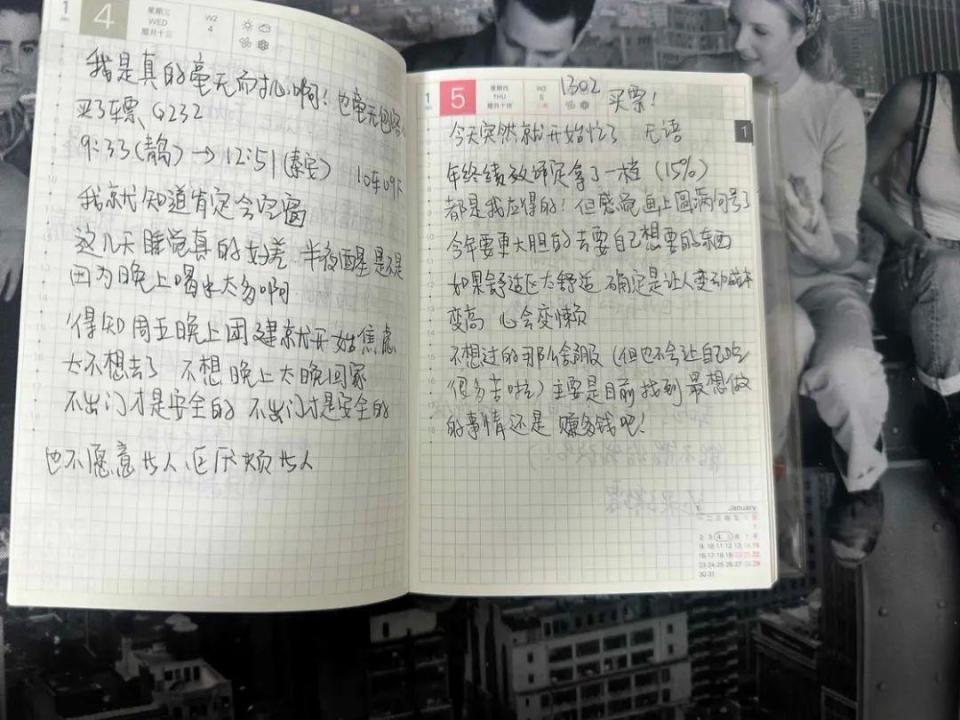 1
4
星期三
WED
腊月十三
W2
4
我是真的毫无耐心啊！也毫无包容
买了车票 G232
9:33(青岛) → 12:51(泰安) 10车09
我就知道肯定会
这几天睡觉真的好差 半夜醒 是不是
因为晚上喝水太多啊
得知周五晚上团建就开始焦虑
太不想去了 不想晚上太晚回家
不出门才是安全的 不出门才是安全的
也不愿意与人 厌烦与人
1
5
星期四
THU
腊月十四
W2
5
1302
买票！
1
今天突然就开始忙了 无语
年终绩效师定拿了一档 (15%)
都是我应得的！但感觉画上圆满句号了
今年要更大胆的去要自己想要的东西
如果舒适区太舒适 确定是让人变动成本
变高 心会变懒
不想过的那么舒服 (但也不会让自己吃
很多苦啦) 主要是目前找到最想做
的事情还是赚多钱吧！
1 January
一二三四五六日
1
2 3 4 5 6 7 8
9 10 11 12 13 14 15
16 17 18 19 20 21 22
23 24 25 26 27 28 29
30 31